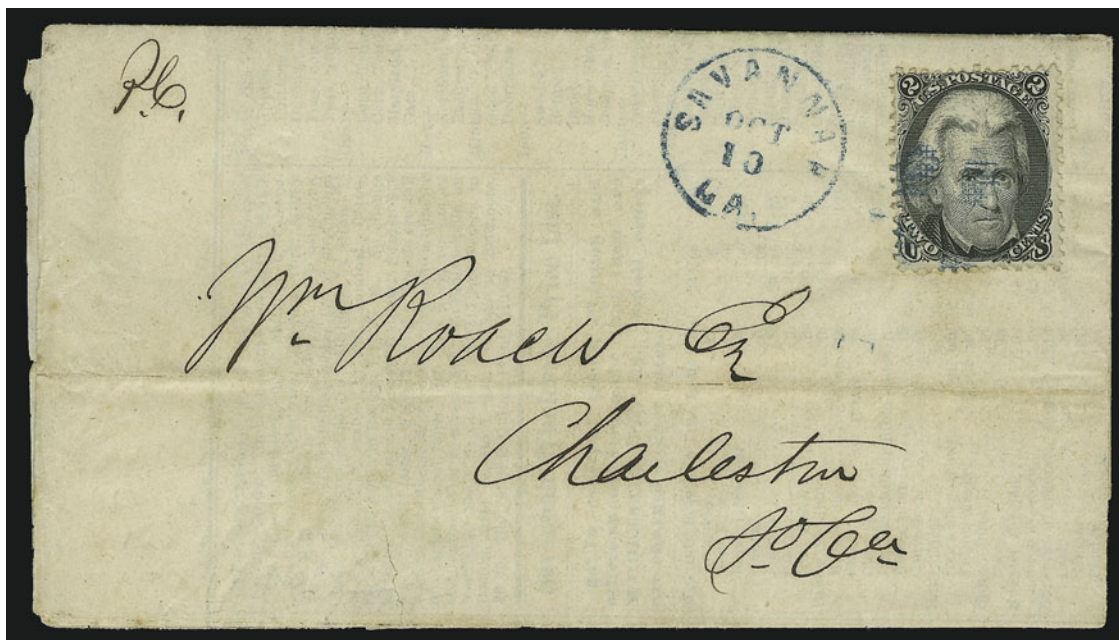 P.C.
SAVANNAH
OCT
10
GA.
2 U.S. POSTAGE 2
TWO CENTS
U S
Wm Roach Esq
Charleston
So Ca